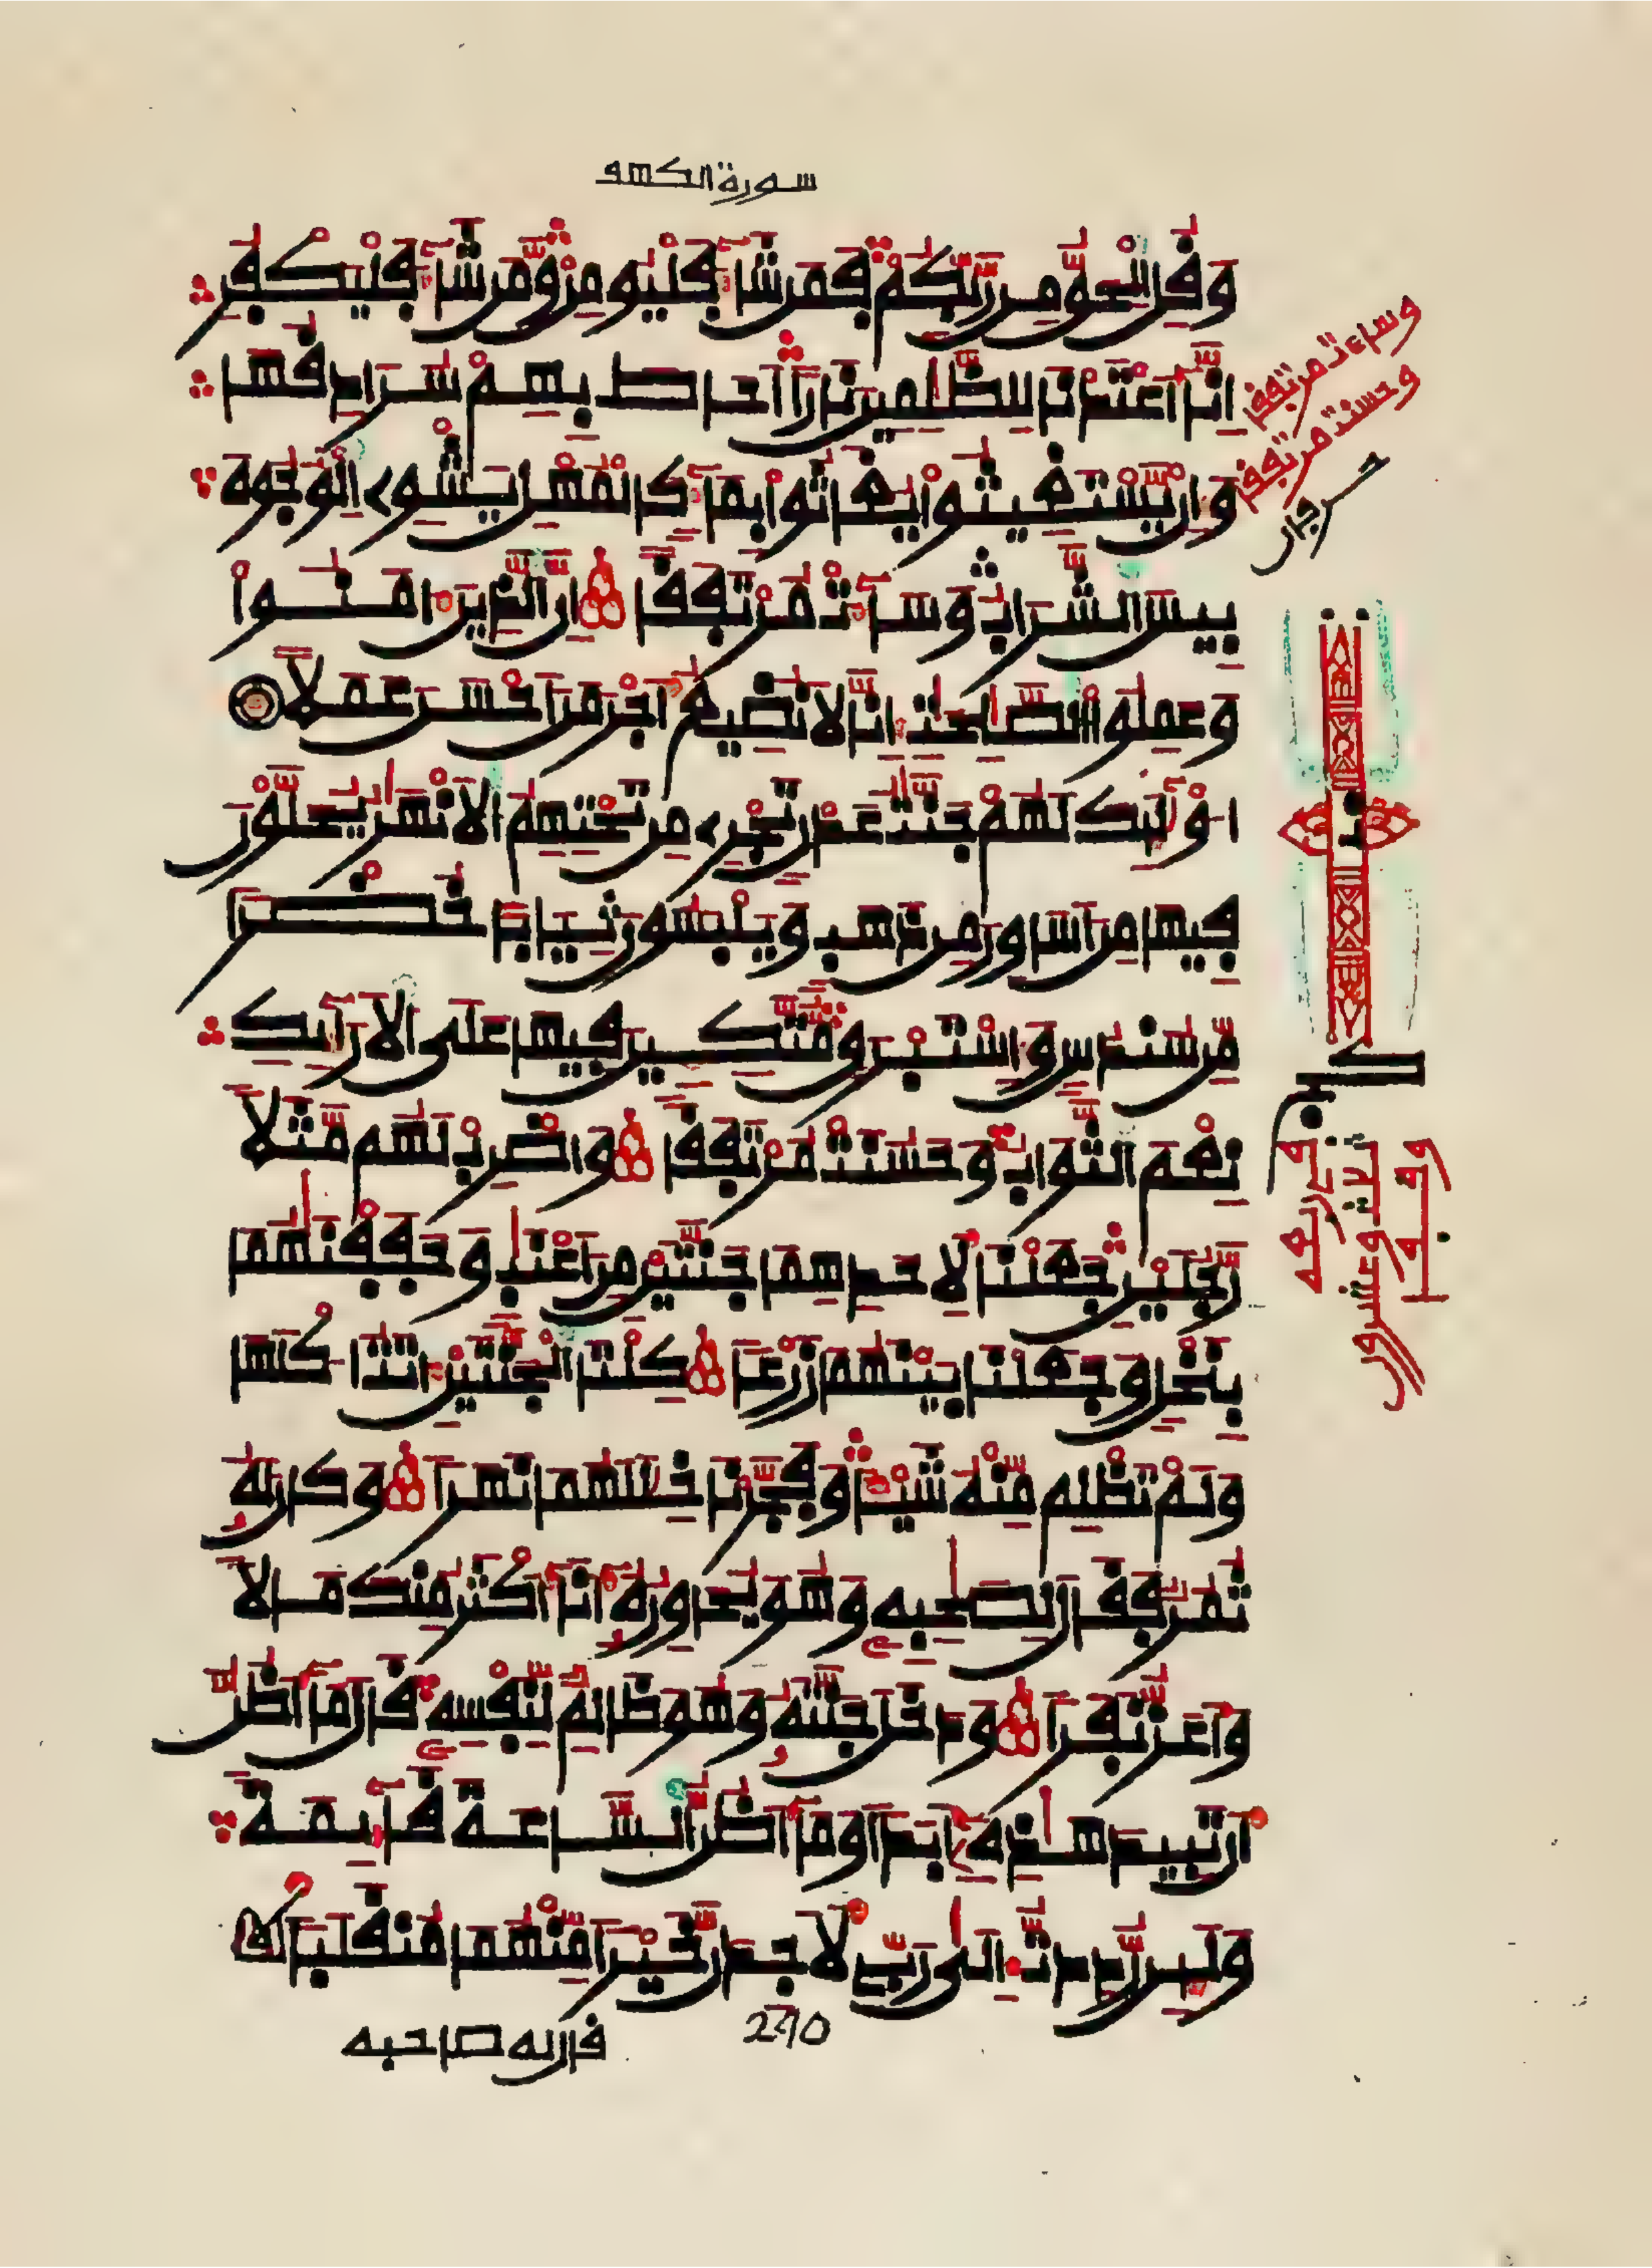 سورة الكهف
وَقُلِ الْحَقُّ مِن رَّبِّكُمْ فَمَن شَآءَ فَلْيُومِن وَّمَن شَآءَ فَلْيَكْفُرِ
اِنَّآ أَعْتَدْنَا لِلظَّٰلِمِينَ نَارًا أَحَاطَ بِهِمْ سُرَادِقُهَا
وَإِنْ يَّسْتَغِيثُوا يُغَاثُوا بِمَآءٍ كَالْمُهْلِ يَشْوِے اِلْوُجُوهَ
بِيسَ الشَّرَابُ وَسَآءَتْ مُرْتَفَقًا اِنَّ الذِينَ ءَامَنُوا
وَعَمِلُوا الصَّٰلِحَٰتِ إِنَّا لَا نُضِيعُ أَجْرَ مَنَ اَحْسَنَ عَمَلًا
اُوْلَٰٓئِكَ لَهُمْ جَنَّٰتُ عَدْنٍ تَجْرِے مِن تَحْتِهِمُ الَانْهَٰرُ يُحَلَّوْنَ
فِيهَا مِنَ اَسَاوِرَ مِن ذَهَبٍ وَيَلْبَسُونَ ثِيَابًا خُضْرًا
مِّن سُندُسٍ وَإِسْتَبْرَقٍ مُّتَّكِـِٕينَ فِيهَا عَلَى الَارَآئِكِ
نِعْمَ الثَّوَابُ وَحَسُنَتْ مُرْتَفَقًا وَاضْرِبْ لَهُم مَّثَلًا
رَّجُلَيْنِ جَعَلْنَا لِأَحَدِهِمَا جَنَّتَيْنِ مِنَ اَعْنَٰبٍ وَحَفَفْنَٰهُمَا
بِنَخْلٍ وَجَعَلْنَا بَيْنَهُمَا زَرْعًا كِلْتَا اَلْجَنَّتَيْنِ ءَاتَتُ اكْلَهَا
وَلَمْ تَظْلِم مِّنْهُ شَيْـًٔا وَفَجَّرْنَا خِلَٰلَهُمَا نَهَرًا وَكَانَ لَهُۥ
ثُمُرٌ فَقَالَ لِصَٰحِبِهِۦ وَهُوَ يُحَاوِرُهُۥٓ أَنَآ أَكْثَرُ مِنكَ مَالًا
وَأَعَزُّ نَفَرًا وَدَخَلَ جَنَّتَهُۥ وَهُوَ ظَالِمٌ لِّنَفْسِهِۦ قَالَ مَآ أَظُنُّ
أَن تَبِيدَ هَٰذِهِۦٓ أَبَدًا وَمَآ أَظُنُّ السَّاعَةَ قَآئِمَةً
وَلَئِن رُّدِدتُّ إِلَىٰ رَبِّے لَأَجِدَنَّ خَيْرًا مِّنْهُمَا مُنقَلَبًا
قال له صاحبه
270
وساءت مرتفقا
وحسنت مرتفقا
ثلاث وعشرون